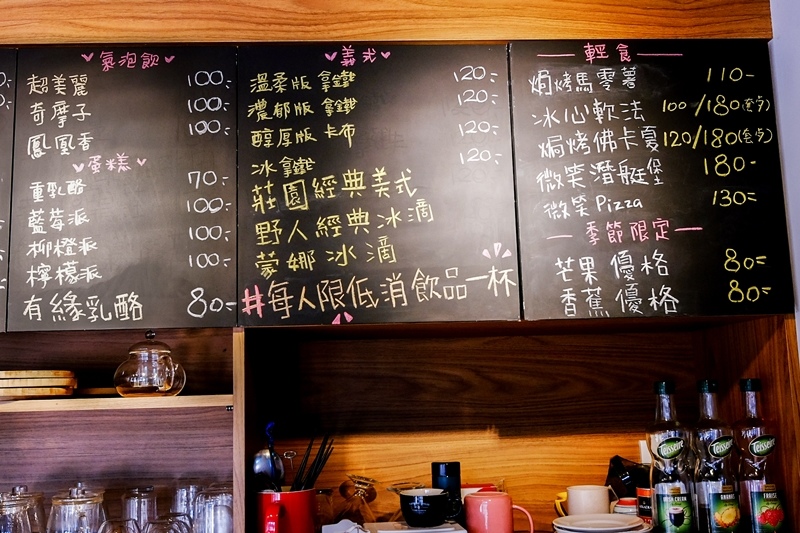 氣泡飲
超美麗 100.-
奇摩子 100.-
鳳凰香 100.-
蛋糕
重乳酪 70.-
藍莓派 100.-
柳橙派 100.-
檸檬派 100.-
有緣乳酪 80.-
義式
溫柔版 拿鐵 120.-
濃郁版 拿鐵 120.-
醇厚版 卡布 120.-
冰拿鐵 120.-
莊園經典美式
野人經典冰滴
蒙娜冰滴
#每人限低消飲品一杯
輕食
焗烤馬零薯 110-
冰心軟法 100/180(套餐)
焗烤佛卡夏 120/180(套餐)
微笑潛艇堡 180-
微笑Pizza 130=
季節限定
芒果優格 80=
香蕉優格 80=
Teisseire
Teisseire
Teisseire
IRISH CREAM
FRAISE